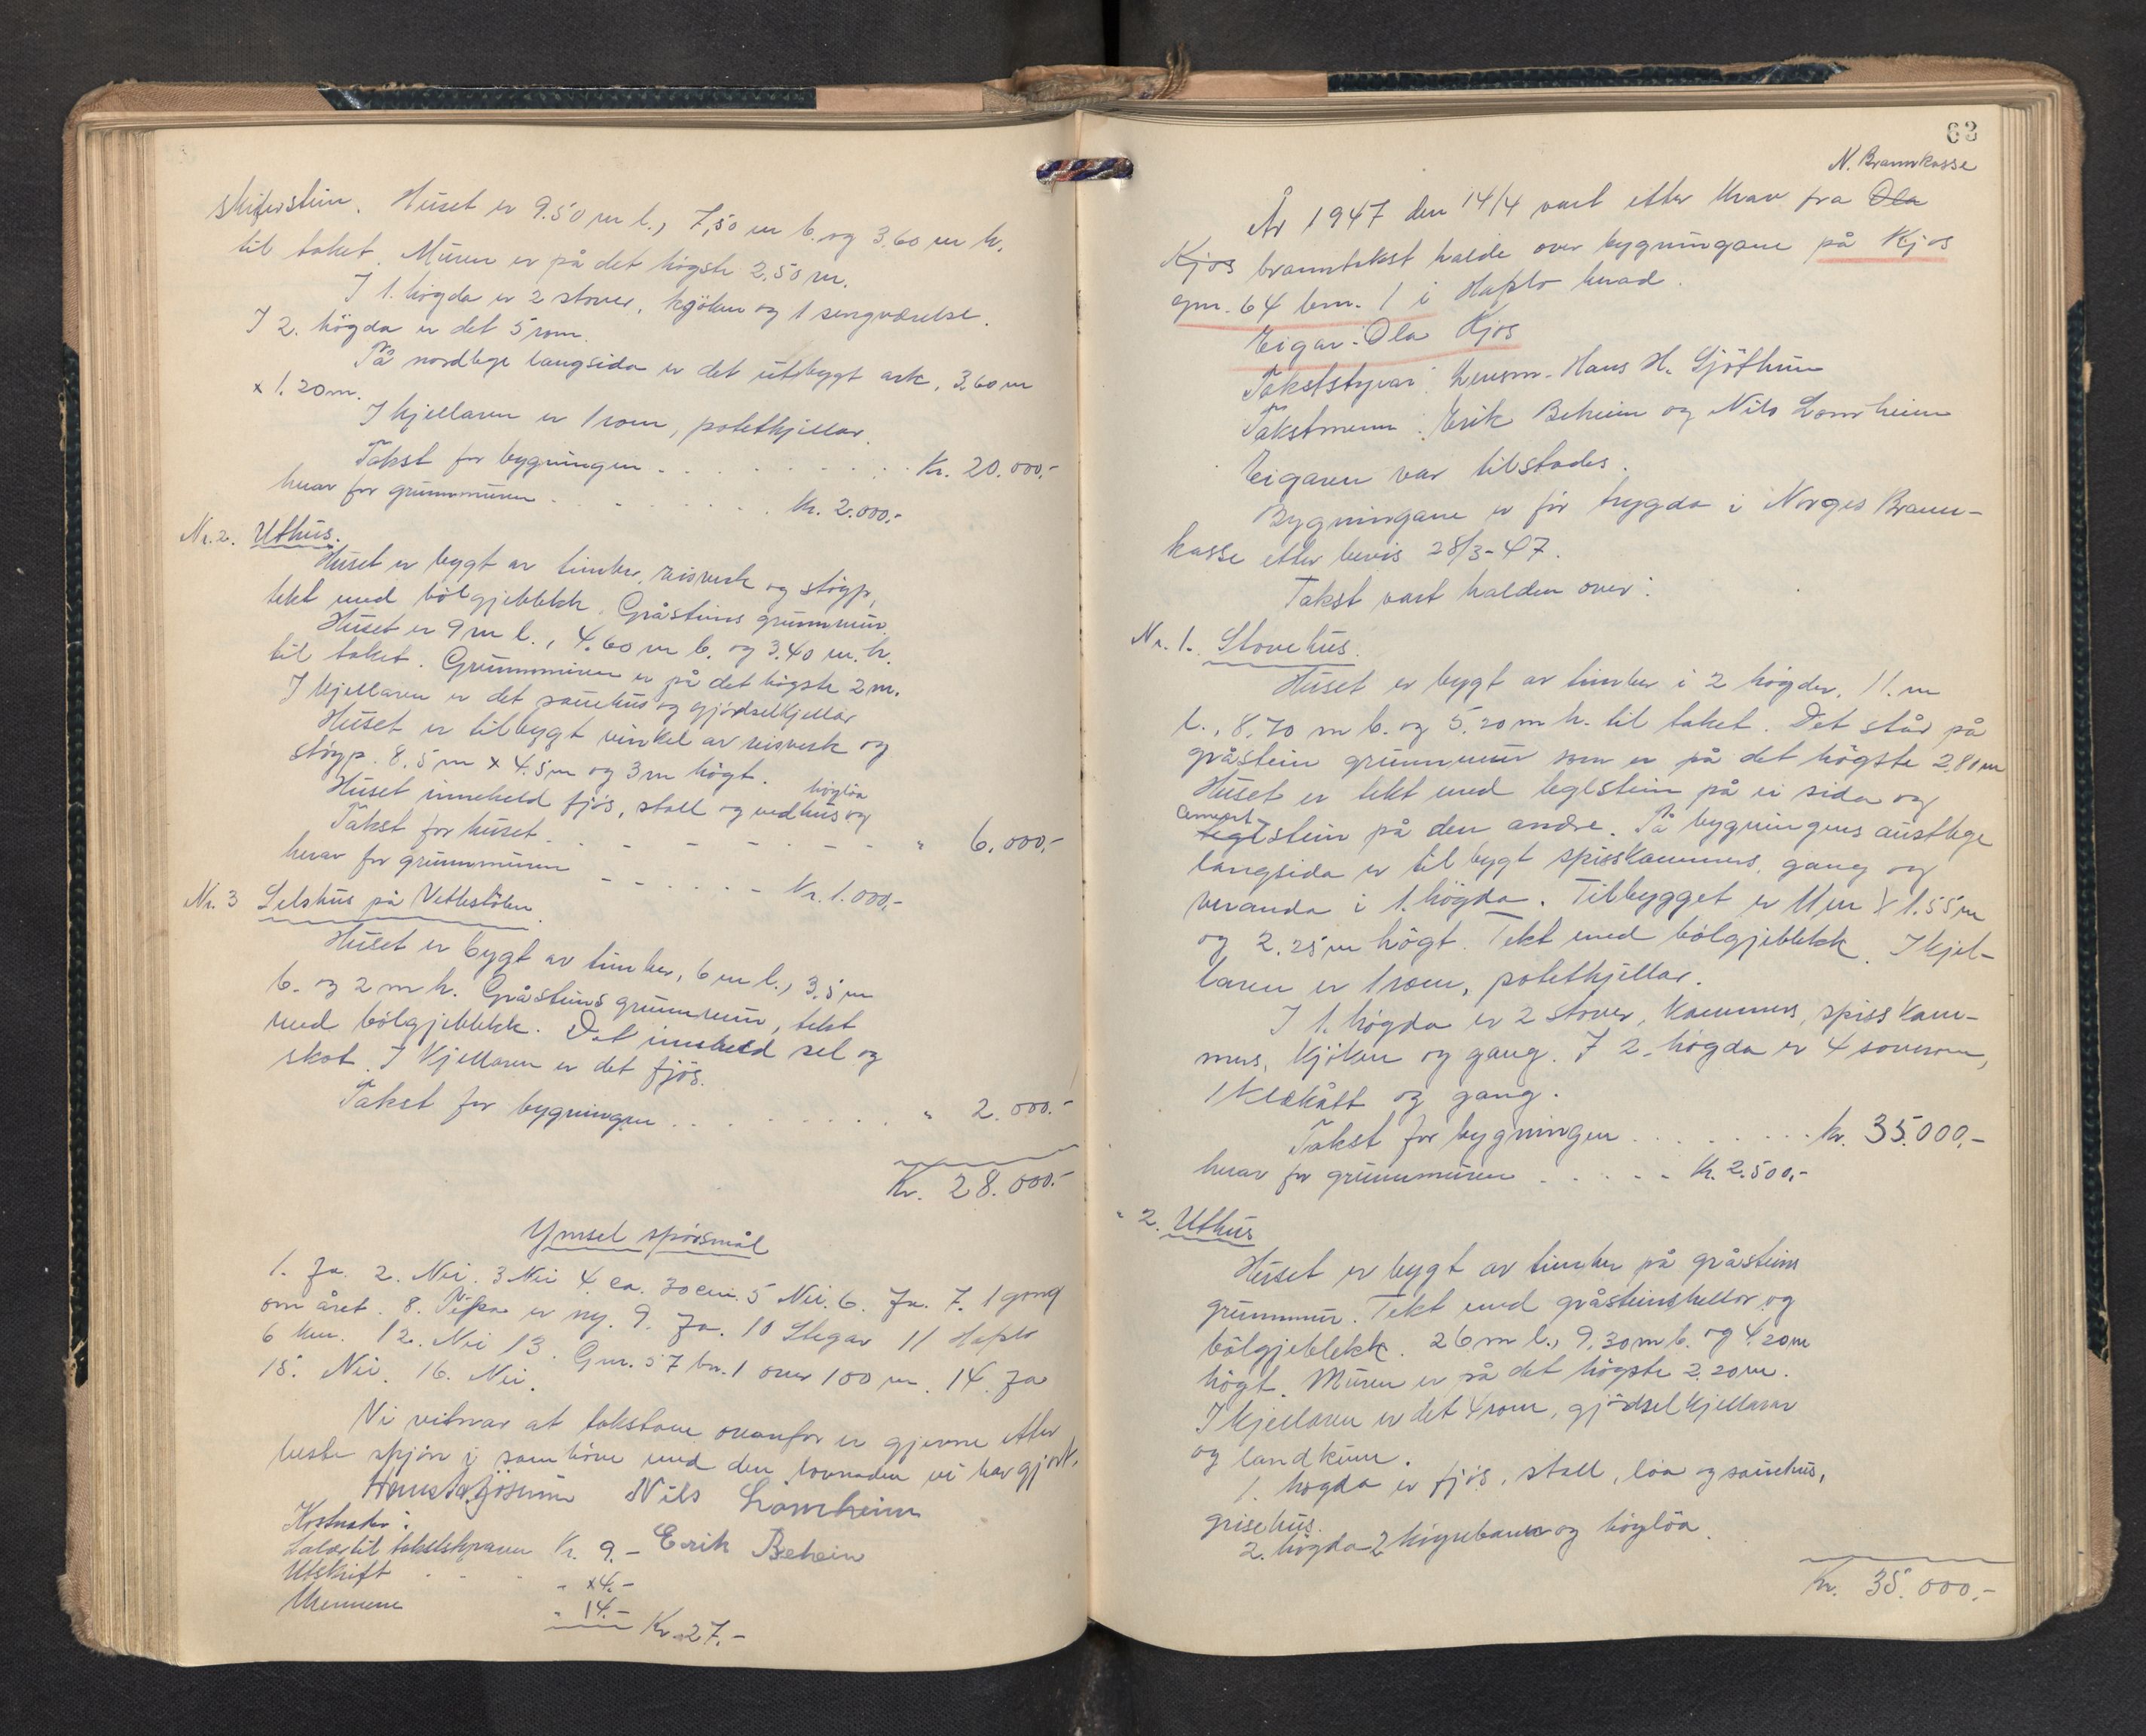 skiferstein. Huset er 9.50 m l., 7,50 m b. og 3.60 m h.
til taket. Muren er på det högste 2.50 m.
I 1. högda er 2 stover, kjöken og 1 sengværelse.
I 2. högda er det 5 rom.
På nordlege langsida er det utbygt ark, 3.60 m
x 1.20 m.
I kjellaren er 1 rom, potetkjellar.
Takst for bygningen . . . . . . . . . Kr. 20.000,-
herav for grunnmuren . . . . . . . Kr. 2.000,-
Nr. 2. Uthus.
Huset er bygt av timber, reisverk og stöyp,
tekt med bölgjeblekk. Gråsteins grunnmur.
Huset er 9 m l., 4.60 m b. og 3.40 m. h.
til taket. Grunnmuren er på det högste 2 m.
I kjellaren er det sauehus og gjödselkjellar
Huset er tilbygt vinkel av reisverk og
stöyp. 8.5 m x 4.5 m og 3 m högt.
höyløa
Huset inneheld fjös, stall og vedhus og
Takst for huset . - - - - - - - " 6.000,-
herav for grunnmuren - - - - - - Kr. 1.000,-
Nr. 3 Selshus på Vettestölen
Huset er bygt av timber, 6 m l., 3.5 m
b. og 2 m h. Gråsteins grunnmur, tekt
med bölgjeblekk. Det inneheld sel og
skot. I kjellaren er det fjös.
Takst for bygningen . . . . . . . . " 2.000.-
Kr. 28.000.-
Ymsel spörsmål
1. Ja. 2. Nei. 3 Nei 4. ca. 30 cm. 5 Nei. 6. Ja. 7. 1 gong
om året. 8. Pipa er ny. 9. Ja. 10 Stegar 11 Hafslo
6 km. 12. Nei 13. Gnr. 57 bn. 1 over 100 m. 14. Ja
15. Nei. 16. Nei.
Vi vitnar at takstane ovanfor er gjevne etter
beste skjön i samhöve med den lovnaden vi har gjort.
Nils Lomheim
Kostnader:
Salær til takstskyraren Kr. 9.- Erik Beheim
Utskrift . . . " x4.-
Mennene " 14.-
Kr. 27.-
63
N. Brannkasse
År 1947 den 14/4 vart etter krav fra Ola
Kjos branntakst halde over bygningane på Kjos
gnr. 64 bnr. 1 i Hafslo herad.
Eigar: Ola Kjos
Takststyrar: Lensm. Hans H. Sjöthun
Takstmenn: Erik Beheim og Nils Lomheim
Eigaren var tilstades.
Bygningane er för trygda i Norges Brann-
kasse etter bevis 28/3-47.
Takst vart halden over:
Nr. 1. Stovehus.
Huset er bygt av timber i 2 högder. 11. m
l., 8.70 m b. og 5.20 m h. til taket. Det står på
gråstein grunnmur som er på det högste 2.80 m
Huset er tekt med teglstein på ei sida og
cement
teglstein på den andre. På bygningens austlege
langsida er tilbygt spisskammers, gang og
veranda i 1. högda. Tilbygget er 11 m x 1.55 m
og 2.25 m högt. Tekt med bölgjeblekk. I kjel-
laren er 1 rom, potetkjellar.
I 1. högda er 2 stover, kammers, spisskam-
mers, kjöken og gang. I 2. högda er 4 soverom,
1 klekått og gang.
Takst for bygningen . . . . . . . . kr. 35.000,-
herav for grunnmuren . . . . - Kr. 2.500,-
" 2. Uthus
Huset er bygt av timber på gråsteins
grunnmur. Tekt med gråsteinshellor og
bölgjeblekk. 26 m l., 9.30 m b. og 4.20 m
högt. Muren er på det högste 2.20 m.
I kjellaren er det 4 rom, gjödselkjellarar
og landkum.
1. högda er fjös, stall, löa og sauehus,
grisehus.
2. högda 2 köyrebruer og höyløa.
Kr. 35.000,-